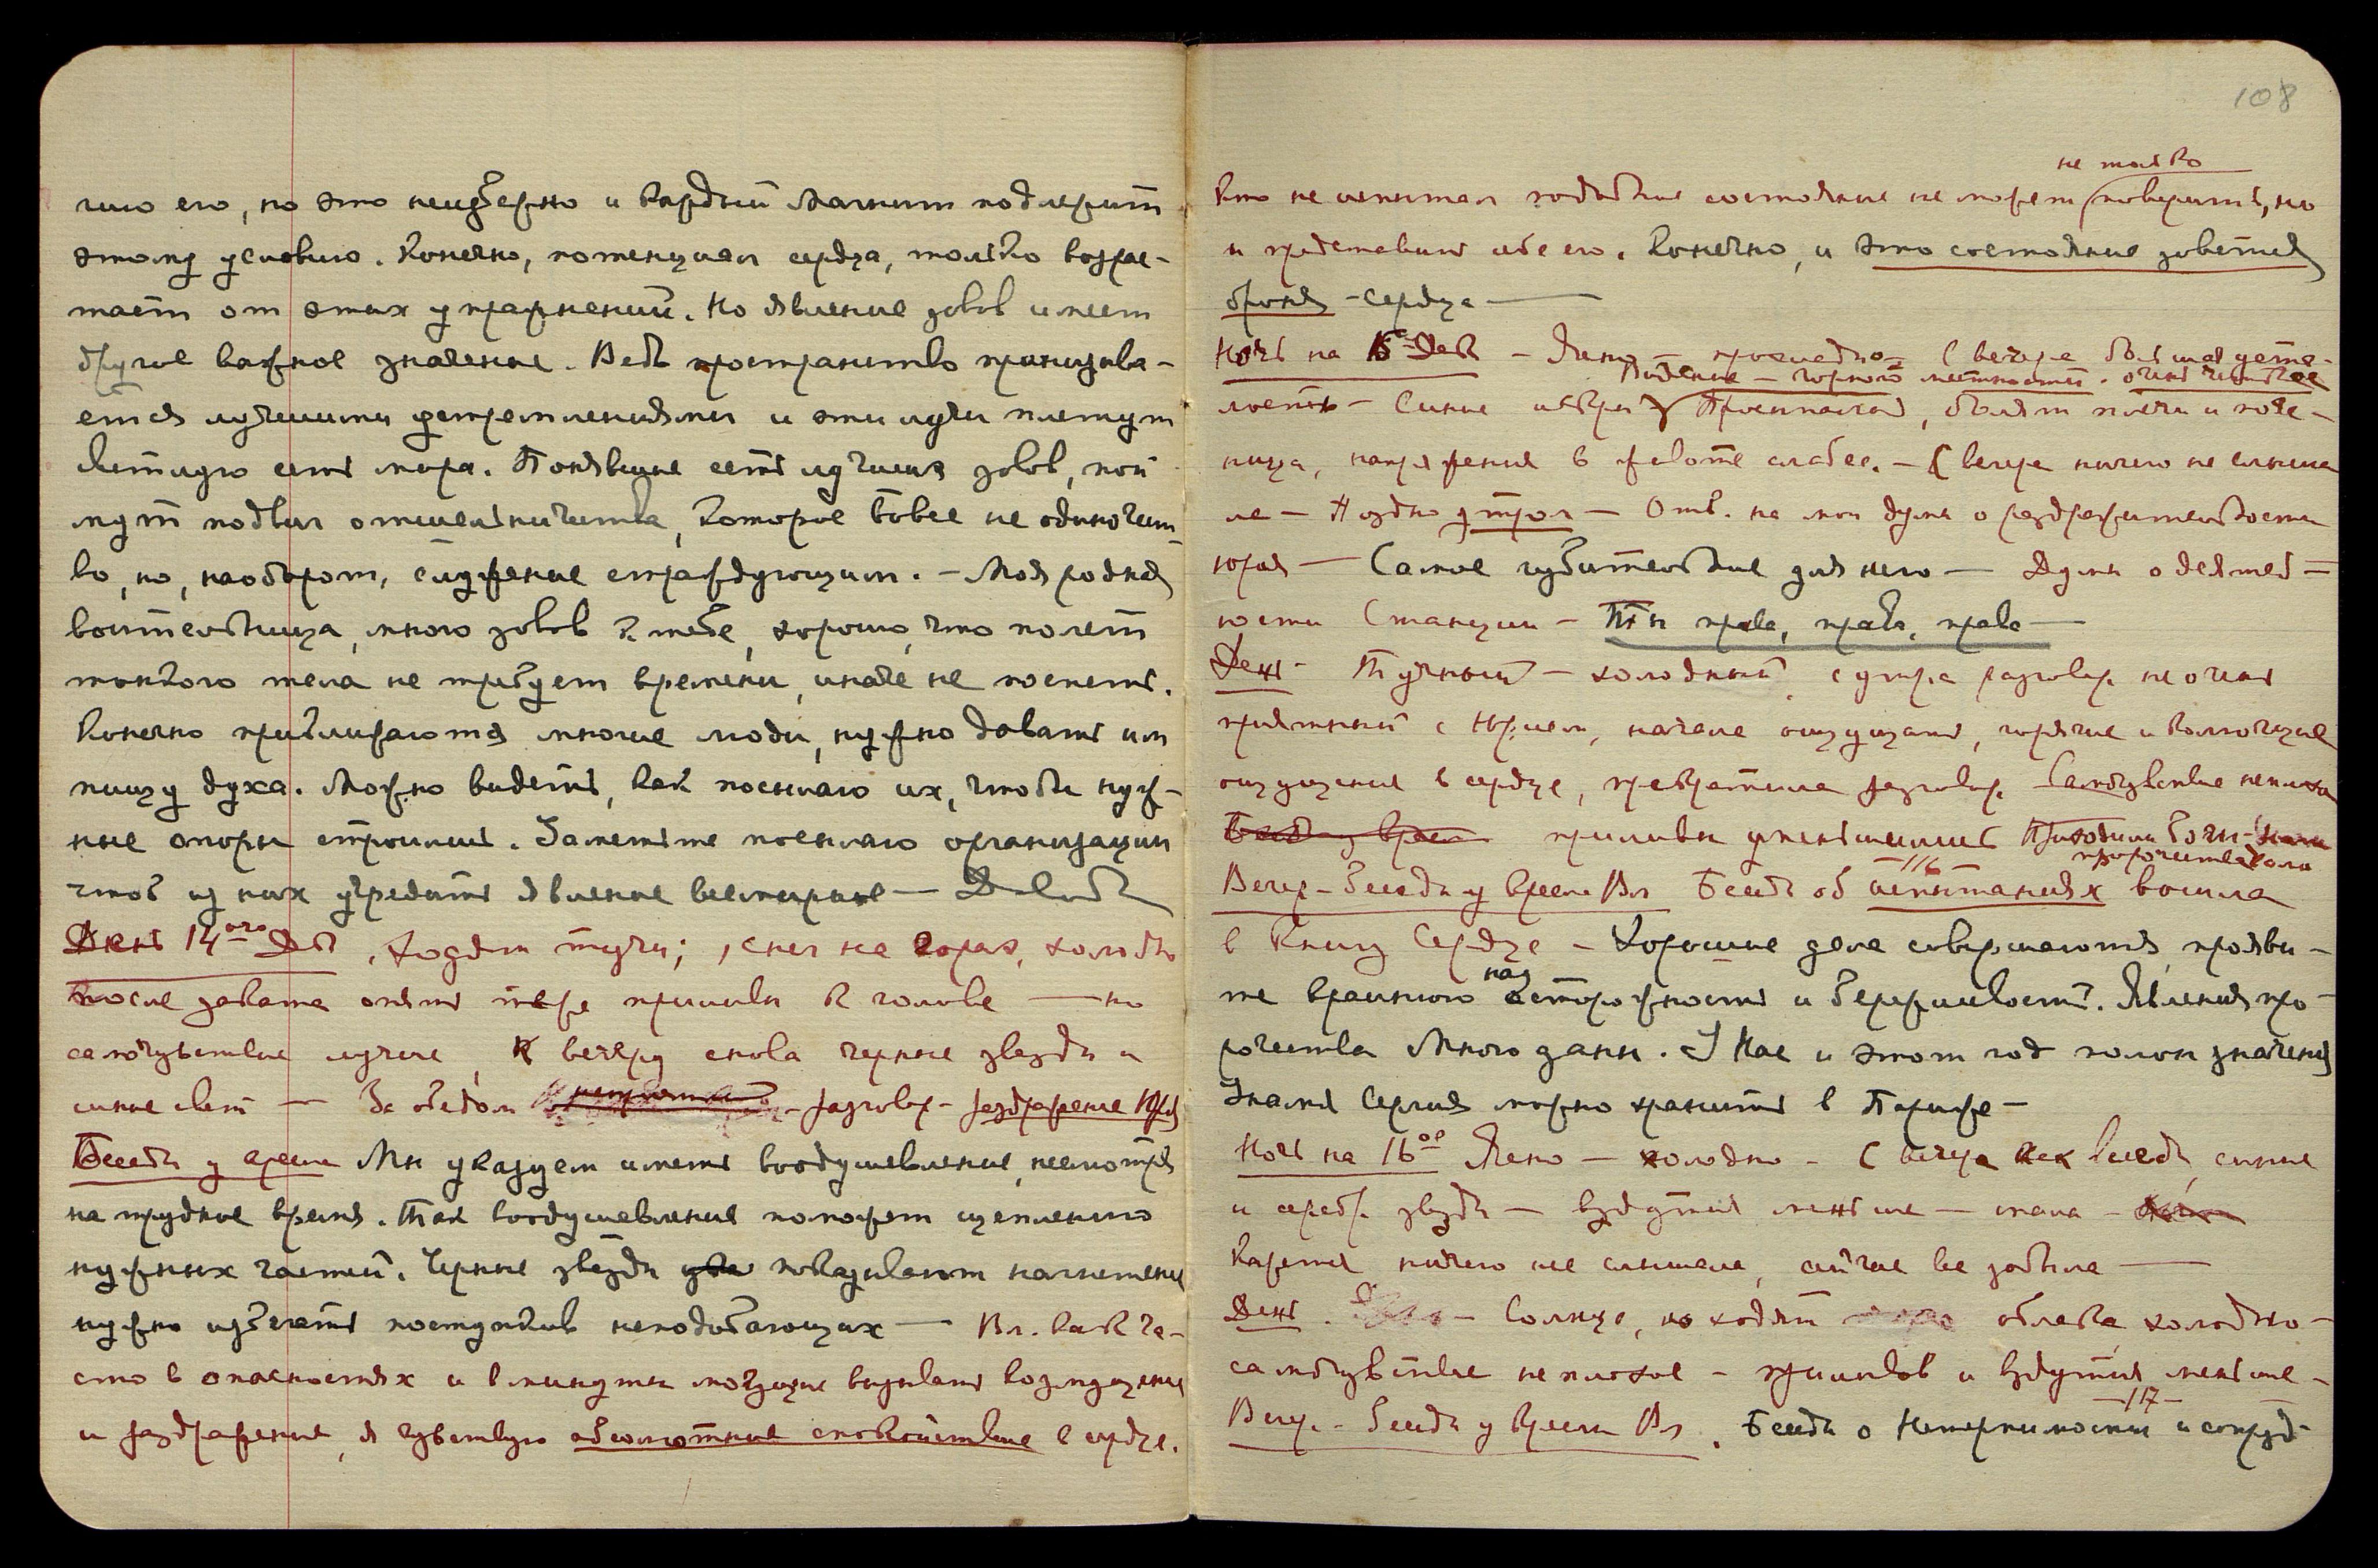 чию его, но это неизбежно и каждый Магнит подлежит
этому условию. Конечно, потенциал сердца, только возрас-
тает от этих упражнений. Но явление зовов имеет
другое важное значение. Ведь пространство пронизыва-
ется лучшими устремлениями и эти лучи плетут
светлую сеть мира. Понявшие сеть лучших зовов, пой
мут подвиг отшельничества, которое вовсе не одиночест
во, но, наоборот, служение страждующим. – Моя родная
воительница, много зовов к тебе, хорошо, что полет
тонкого тела не требует времени, иначе не поспеть.
Конечно приближаются многие люди, нужно давать им
пищу духа. Можно видеть, как посылаю их, чтобы нуж-
ные опоры строились. Заметьте посылаю организации
чтоб из них учредить явление всемирное — Довольно
День 14ого Дек, ходят тучи; , снег на горах, холодно
после завтрака опять жар приливы к голове — но
самочувствие лучше, К вечеру снова черные звезды и
синие свет — За обедом разговор – раздражение Юрия
Беседы у кресла Мы указуем иметь воодушевление, несмотря
на трудное время. Так воодушевление поможет сцеплению
нужных частей. Черные звезды показывают нагнетение
нужно избегать поступков неподобающих — Вл. как ча-
сто в опасностях и в минуты могущие вызвать возмущение
и раздражение, я чувствую абсолютное спокойствие в сердце.
108
не только
Кто не испытал подобные состояние не может поверить, но
и представить себе его. Конечно, и это состояние зовется
броня – сердца —
Ночь на 15 Дек – Ясно – прохладно – С вечера большая уста-
Видение – горной местности. очень четкое
лость – Синие искры Просыпалась, болят плечи и пояс-
ница, напряжения в животе слабее. – С вечера ничего не слыша
ла – Поздно утром – Отв. на мои думы о раздражительности
Юрия — Самое губительное для него — Думы о деятель-
ности Станции – Ты права, права, права —
День – Тучный – холодный, с утра разговор не очень
приятный с Юрием, начала ощущать, горячие и колющие
ощущения в сердце, прекратила разговор. Самочувствие неплохое
приливы уменьшились Приходили
Вечер – Беседы у кресла Вл Беседа об испытаниях вошла
116
в Книгу Сердце – Хорошие дела совершаются, прояви-
над
те крайнюю осторожность и бережливость. Явления про-
рочества Много даны. У Нас и этот год полон значения
Знамя Сергия можно хранить в Париже –
Ночь на 16ое Ясно – холодно – С вечера как всегда, синие
и серебр. звезды — вздутия меньше — спала –
Кажется ничего не слышала, сейчас все забыла —
День. – Солнце, но ходят облака, холодно –
самочувствие неплохое – приливов и вздутия меньше –
117
Вечер – Беседы у кресла Вл. Беседы о Нетерпимости и сотруд-